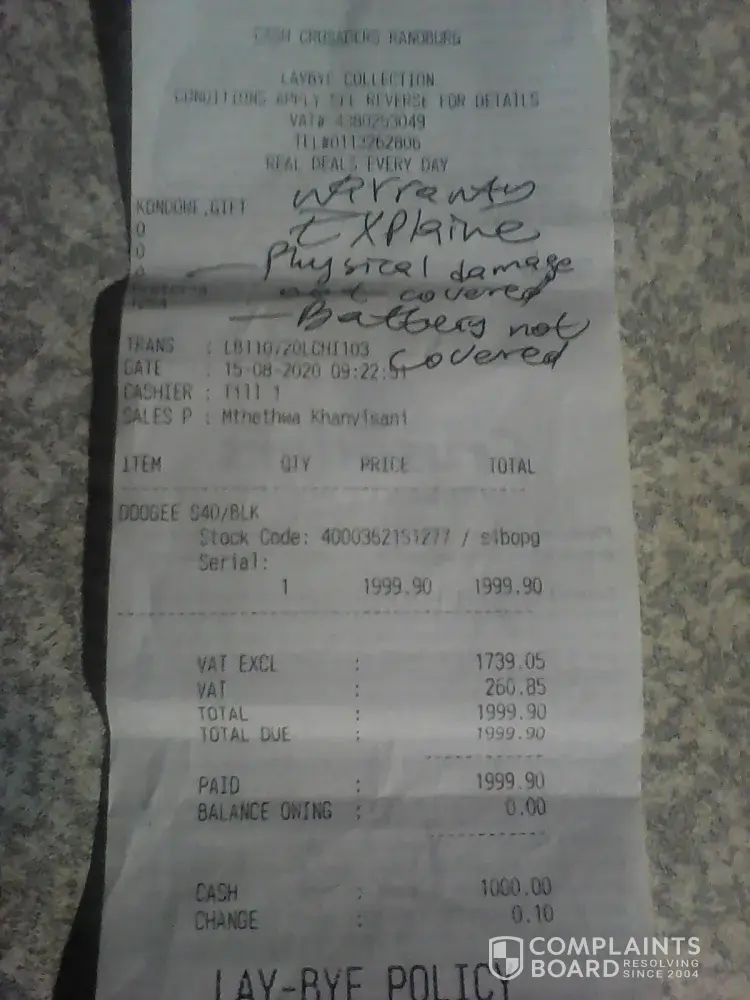 CASH CRUSADERS RANDBURG
LAYBYE COLLECTION
CONDITIONS APPLY SEE REVERSE FOR DETAILS
VAT# 4380253049
TEL#0113262806
REAL DEALS EVERY DAY
warranty
KONDORE,GIFT
Explaine
0
0
Physical damage
0
not covered
Battery not
TRANS :
covered
DATE : 15-08-2020 09:22:51
CASHIER : Till 1
SALES P : Mthethwa Khanyisani
ITEM QTY PRICE TOTAL
DOOGEE S40/BLK
Stock Code: 4000362151277 / s1bopg
Serial:
1 1999.90 1999.90
VAT EXCL : 1739.05
VAT : 260.85
TOTAL : 1999.90
TOTAL DUE : 1999.90
PAID : 1999.90
BALANCE OWING : 0.00
CASH : 1000.00
CHANGE : 0.10
LAY-BYE POLICY
COMPLAINTS
BOARD RESOLVING SINCE 2004